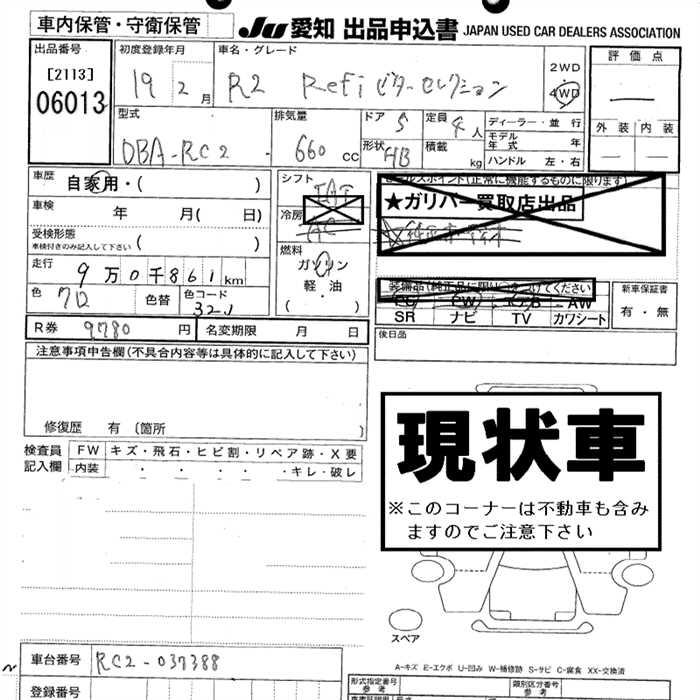 車内保管・守衛保管
JU 愛知 出品申込書 JAPAN USED CAR DEALERS ASSOCIATION
出品番号
[2113]
06013
初度登録年月
19 2 月
車名・グレード
R2 Refi ビターセレクション
2WD
4WD
評価点
外装 内装
型式
DBA-RC2
排気量
660 cc
ドア 5
形状 HB
定員 4 人
積載 kg
ディーラー・並行
モデル年式 年
ハンドル 左・右
車歴
自家用・( )
車検 年 月( 日)
受検形態
車検付きのみ記入して下さい ( )
走行 9万0千861km
色 クロ 色替 色コード 32J
R券 9780 円 名変期限 月 日
シフト
冷房
燃料
ガソリン
軽・油
( )
セールスポイント(正常に機能するものに限ります)
★ガリバー買取店出品
装備品(純正品に限り○をつけてください
SR ナビ TV カワシート
新車保証書
有・無
後日品
注意事項申告欄(不具合内容等は具体的に記入して下さい)
修復歴 有 (箇所 )
検査員記入欄
FW キズ・飛石・ヒビ割・リペア跡・X要
内装 ・ ・ ・ ・キレ・破レ
現状車
※このコーナーは不動車も含みますのでご注意下さい
スペア
A-キズ E-エクボ U-凹み W-補修跡 S-サビ C-腐食 XX-交換済
車台番号 RC2-037388
登録番号
形式指定番号
参考
類別区分番号
参考